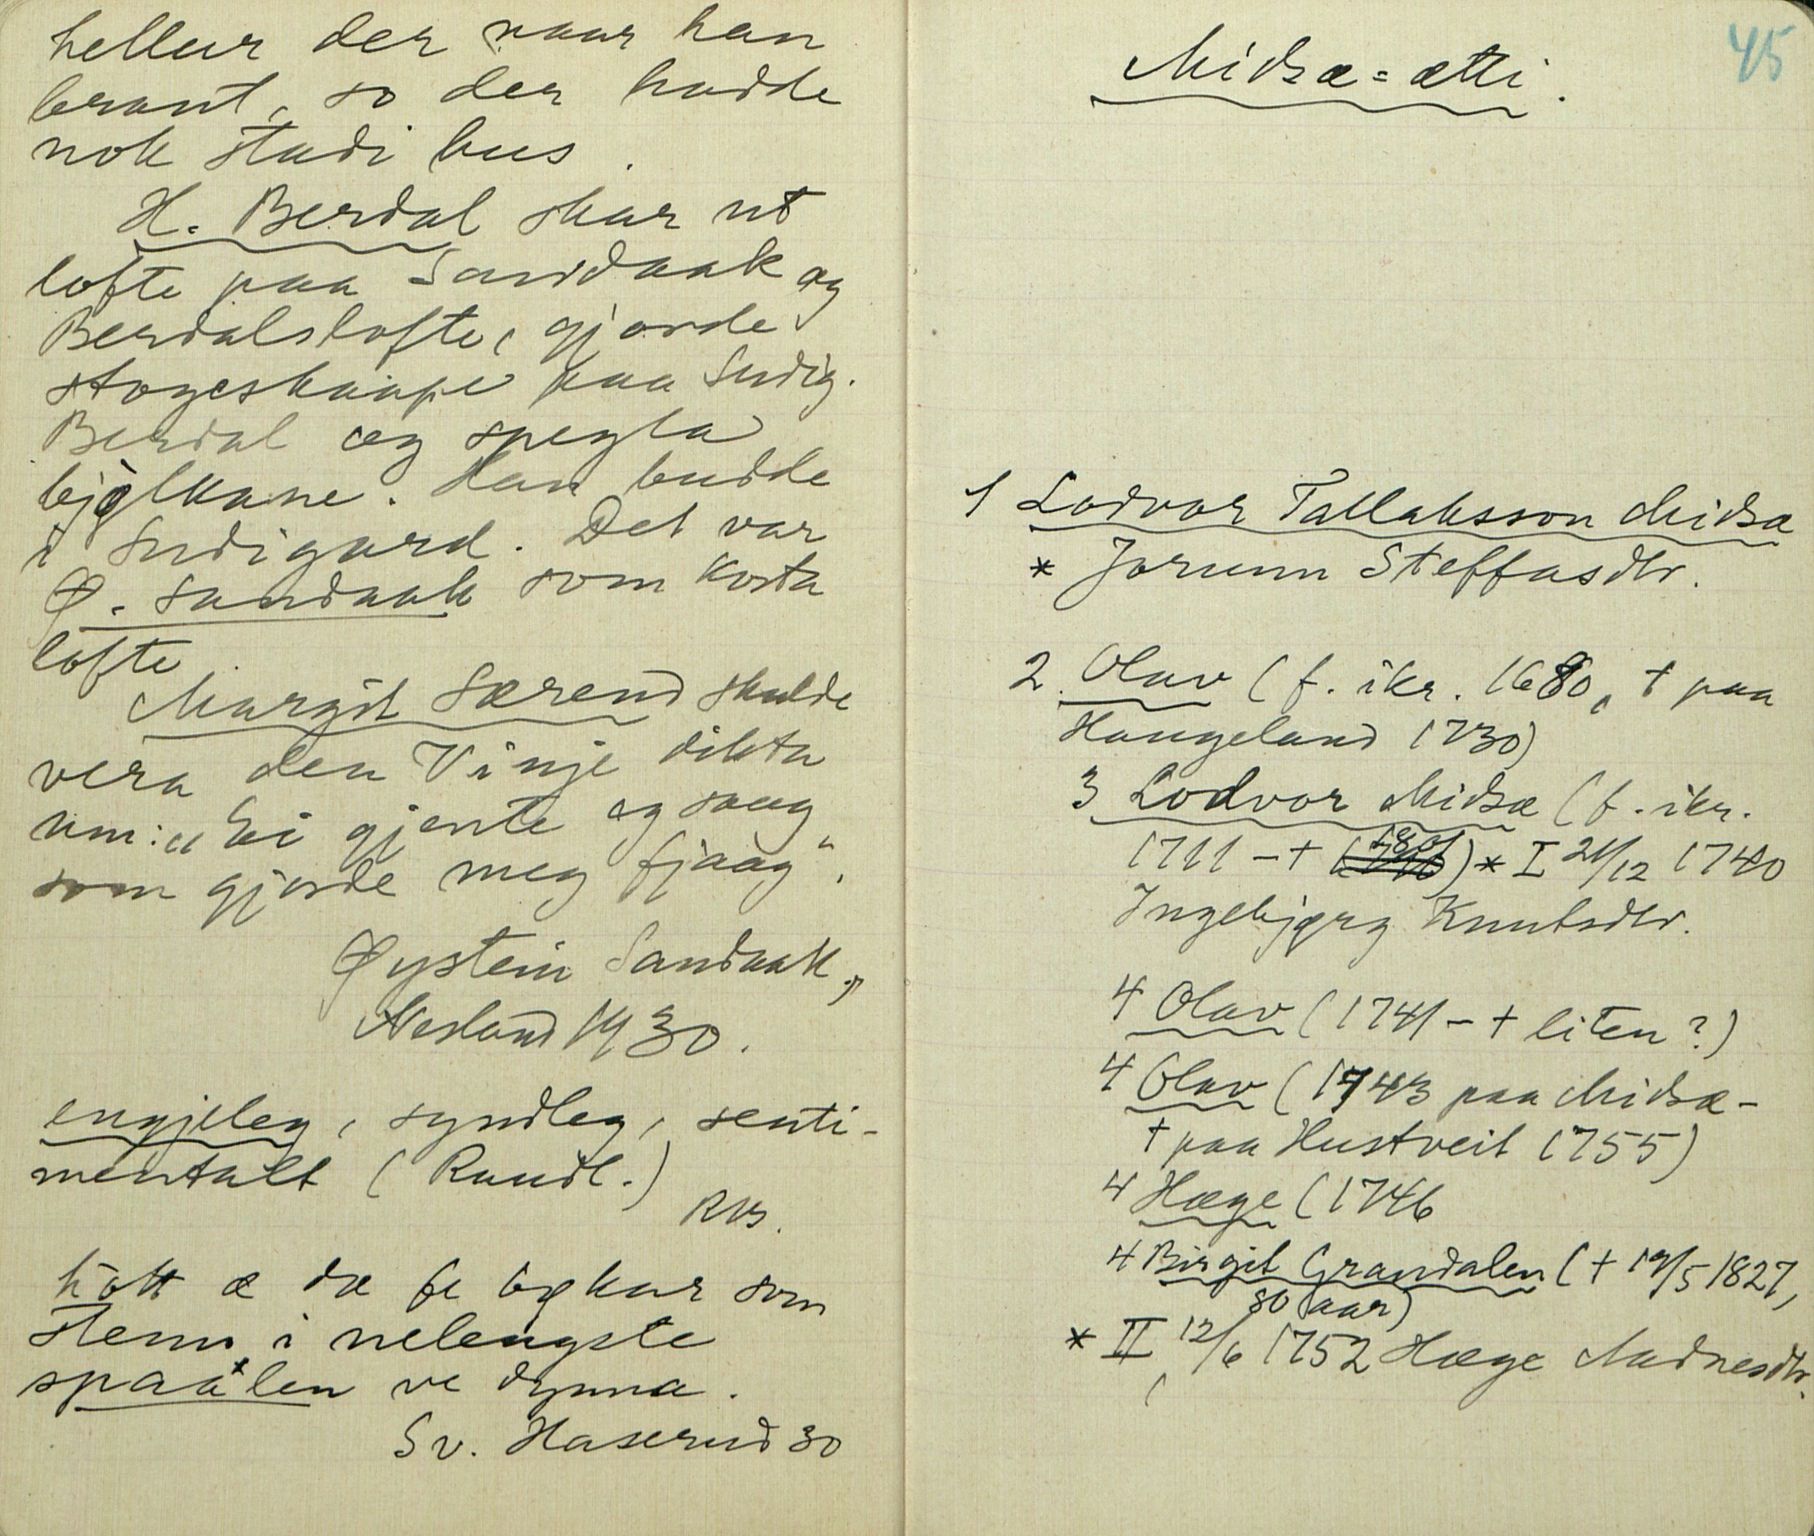 hellur der naar han
brant, so der hadde
nok stadi hus.
H. Berdal skar ut
lofte paa Sandaak og
Berdalslofte, gjorde
stogeskaape paa Sudig.
Berdal og spegla
bjølkane. Han budde
i Sudigard. Det var
Ø. Sandaak som kosta
lofte
Margit Særend skulde
vera den Vinje dikta
um: "Ei gjente eg saag
som gjorde meg fjaag".
Øystein Sandaak,
Nesland 1930.
engjeleg, syndleg, senti-
mentalt (Raudl.)
RNB.
hott æ dæ fe bokar som
stenn i nelengste
spaalen ve dynna.
Sv. Haserud 30
45
Midsæ=ætti.
1 Lodvor Tallaksson Midsæ
* Jorunn Steffasdtr.
2. Olav (f. ikr. 1680, † paa
Haugeland 1730)
3 Lodvor Midsæ (f. ikr.
1711 - † 1801) * I 21/12 1740
Ingebjørg Knutsdtr.
4 Olav (1741 - † liten?)
4 Olav (1743 paa Midsæ -
† paa Hustveit 1755)
4 Hæge (1746
4 Birgit Grandalen († 19/5 1827,
80 aar)
* II 12/6 1752 Hæge Aadnesdtr.
(